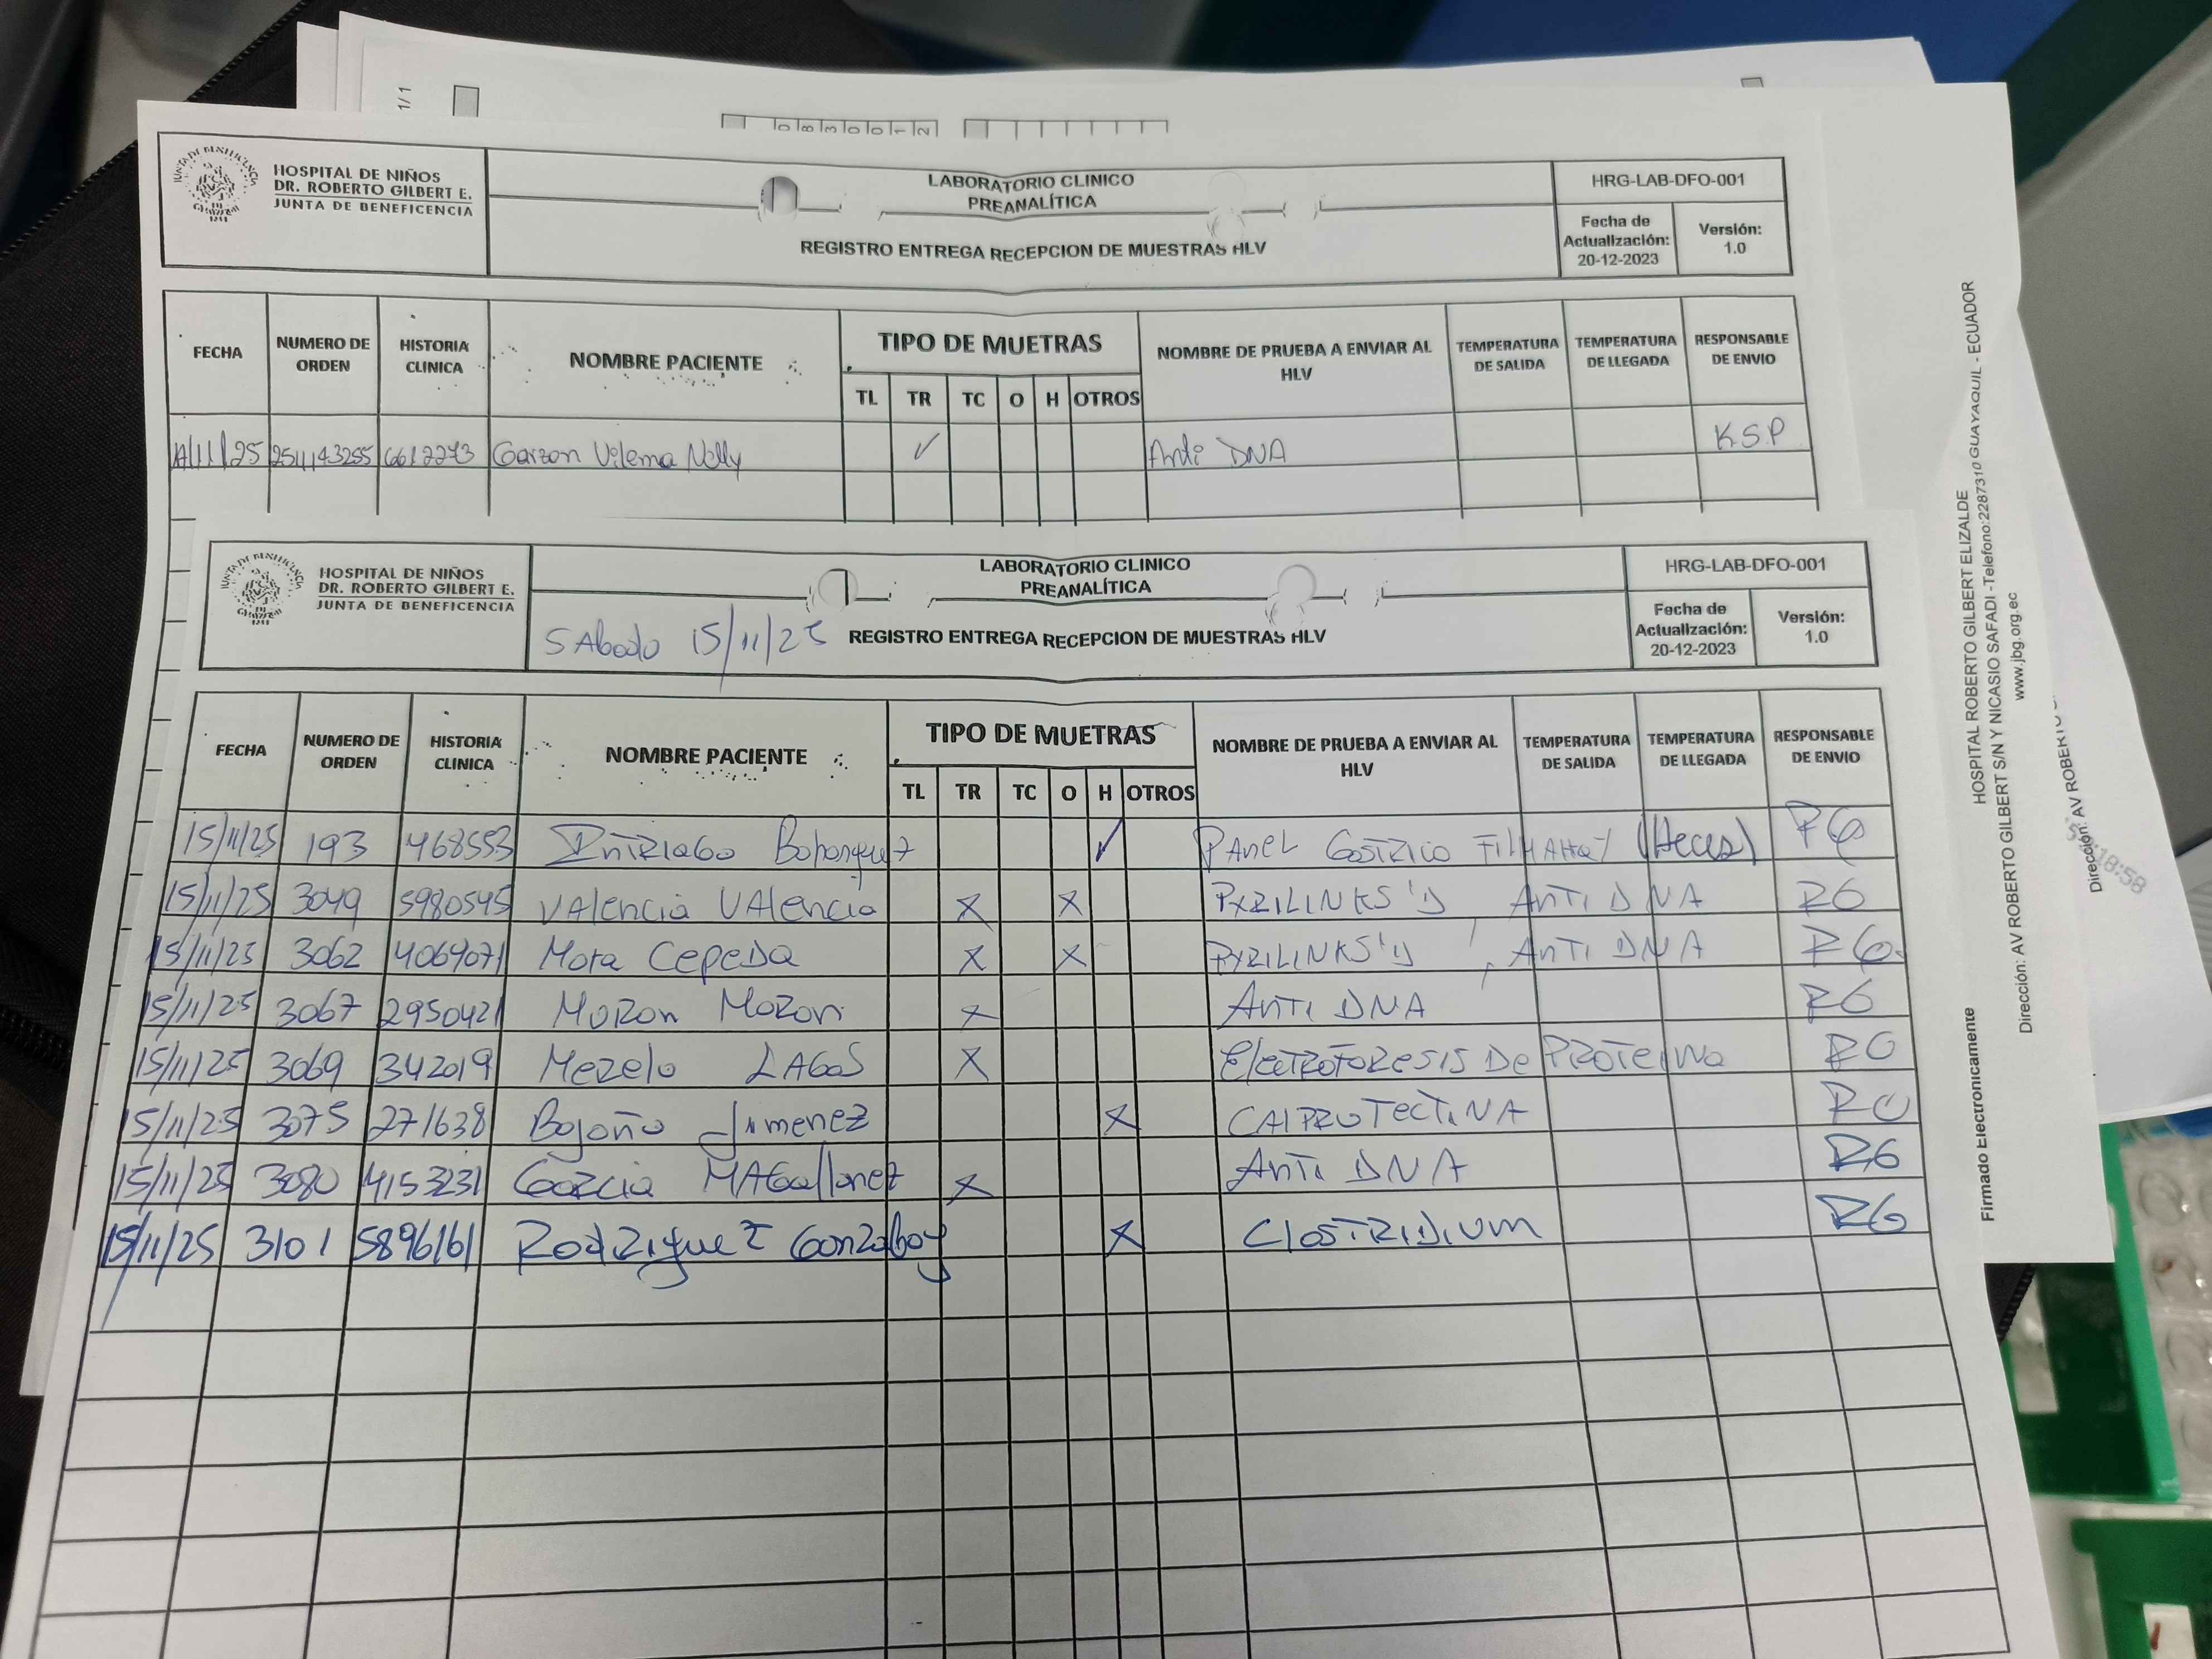 1/1
HOSPITAL DE NIÑOS
DR. ROBERTO GILBERT E.
JUNTA DE BENEFICENCIA
LABORATORIO CLINICO
PREANALÍTICA
REGISTRO ENTREGA RECEPCION DE MUESTRAS HLV
HRG-LAB-DFO-001
Fecha de Actualización: 20-12-2023
Versión: 1.0
FECHA NUMERO DE ORDEN HISTORIA CLINICA NOMBRE PACIENTE TIPO DE MUETRAS NOMBRE DE PRUEBA A ENVIAR AL HLV TEMPERATURA DE SALIDA TEMPERATURA DE LLEGADA RESPONSABLE DE ENVIO
TL TR TC O H OTROS
14/11/25 2511143255 6612273 Garzon Vilema Nelly ✓ Anti DNA K.S.P
HOSPITAL DE NIÑOS
DR. ROBERTO GILBERT E.
JUNTA DE BENEFICENCIA
LABORATORIO CLINICO
PREANALÍTICA
SAbado 15/11/25 REGISTRO ENTREGA RECEPCION DE MUESTRAS HLV
HRG-LAB-DFO-001
Fecha de Actualización: 20-12-2023
Versión: 1.0
FECHA NUMERO DE ORDEN HISTORIA CLINICA NOMBRE PACIENTE TIPO DE MUETRAS NOMBRE DE PRUEBA A ENVIAR AL HLV TEMPERATURA DE SALIDA TEMPERATURA DE LLEGADA RESPONSABLE DE ENVIO
TL TR TC O H OTROS
15/11/25 193 468553 INTRIAGO ✓ PANEL (Heces) RG
15/11/25 3049 5980545 VAlencia VAlencia X X PYRILINKS'D ANTI DNA RG
15/11/25 3062 4069071 Mora CepeDa X X PYRILINKS'D , ANTI DNA RG
15/11/25 3067 2950421 MoRan MoRan X ANTI DNA RG
15/11/25 3069 342019 Merelo LAGOS X ElecTROFORESIS De PROTeINa RG
15/11/25 3075 271638 Bajaña Jimenez X CAlPROTECTINA RG
15/11/25 3080 4153231 García MAGallanez X ANTI DNA RG
15/11/25 3101 5896161 RodRiguez Gonzabay X ClOSTRIDIUM RG
HOSPITAL ROBERTO GILBERT ELIZALDE
Dirección: AV ROBERTO GILBERT S/N Y NICASIO SAFADI - Telefono:2287310 GUAYAQUIL - ECUADOR
www.jbg.org.ec
Firmado Electronicamente
Dirección: AV ROBERTO
18:58